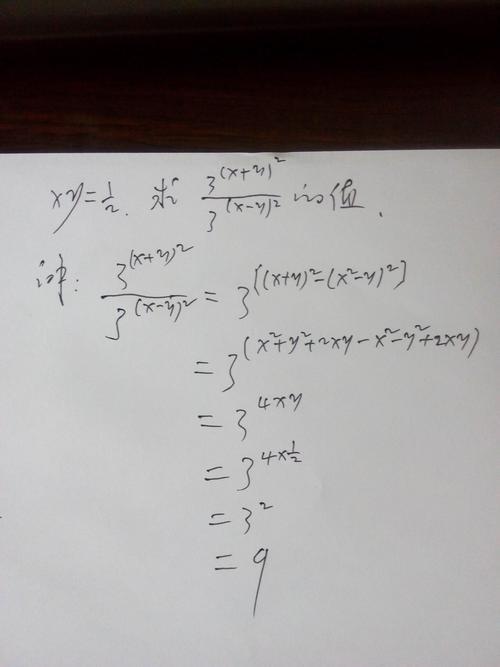 xy=1/2. 求 3^(x+y)^2 / 3^(x-y)^2 的值.
解: 3^(x+y)^2 / 3^(x-y)^2 = 3^[(x+y)^2-(x^2-y)^2]
= 3^(x^2+y^2+2xy-x^2-y^2+2xy)
= 3^4xy
= 3^4×1/2
= 3^2
= 9